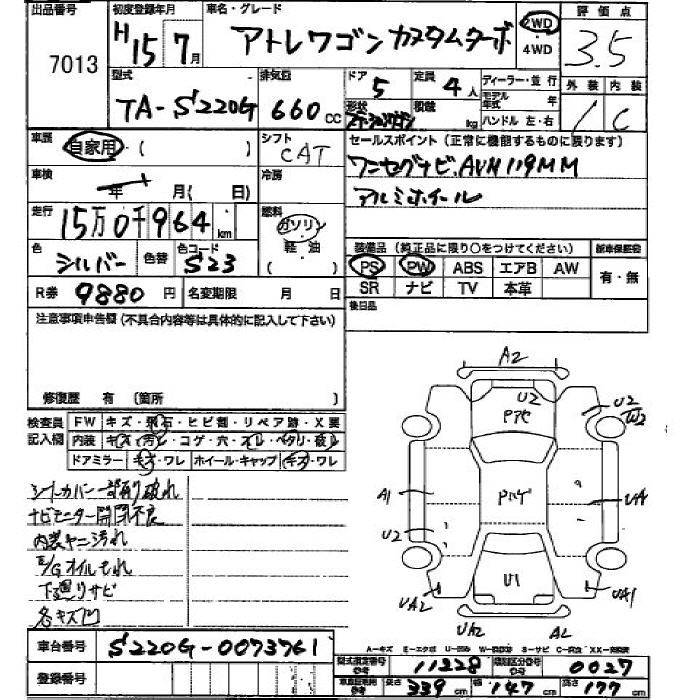 出品番号
7013
初度登録年月
H15 7月
車名・グレード
アトレワゴン カスタムターボ
2WD
・
4WD
評価点
3.5
外装 内装
1 C
型式
TA-S220G
排気量
660 cc
ドア
5
定員
4人
形状
ステーションワゴン
積載
kg
ディーラー・並行
モデル年式 年
ハンドル 左・右
車歴
自家用・( )
シフト
CAT
セールスポイント(正常に機能するものに限ります)
ワンセグナビ.AVN119MM
アルミホイール
車検
年 月( 日)
冷房
走行
15万0千964km
燃料
ガソリン
軽油
( )
色
シルバー
色替
色コード
S23
装備品(純正品に限り○をつけてください)
PS PW ABS エアB AW
SR ナビ TV 本革
新車保証書
有・無
R券
9880円
名変期限 月 日
後日品
注意事項申告欄(不具合内容等は具体的に記入して下さい)
修復歴 有 (箇所 )
検査員記入欄
FW キズ・飛石・ヒビ割・リペア跡・X要
内装 キズ・汚れ・コゲ・穴・スレ・ベタリ・破れ
ドアミラー キズ・ワレ ホイール・キャップ キズ・ワレ
シートカバー一部有り破れ
ナビモニター開閉不良
内装ヤニ汚れ
E/Gオイルもれ
下廻りサビ
各キズ凹
A2
U2
Pアセ
U2
W2
A1
Pハゲ
UA1
U2
U1
UA2
UA1
UA2
A2
車台番号
S220G-0073761
登録番号
A-キズ E-エクボ
S-サビ
型式指定番号
参考
11228
類別区分番号
参考
0027
長さ
339cm
幅
147cm
高さ
177cm